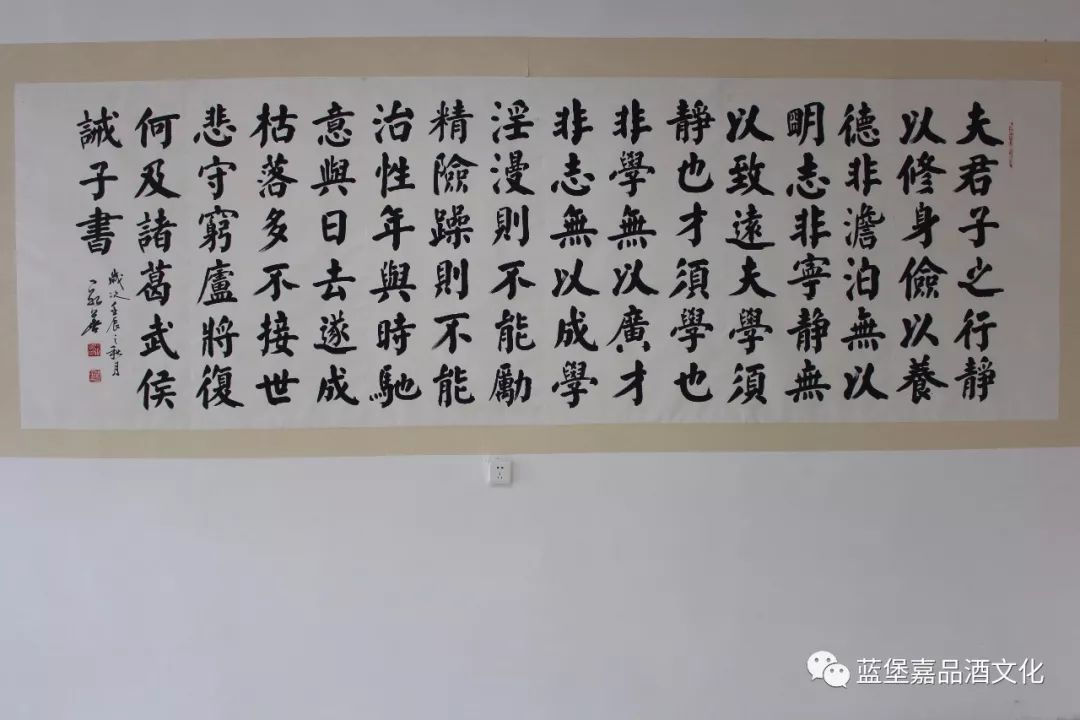 夫君子之行靜
以修身儉以養
德非澹泊無以
明志非寧靜無
以致遠夫學須
靜也才須學也
非學無以廣才
非志無以成學
淫漫則不能勵
精險躁則不能
治性年與時馳
意與日去遂成
枯落多不接世
悲守窮廬將復
何及諸葛武侯
誡子書
歲次壬辰之秋月
蓝堡嘉品酒文化